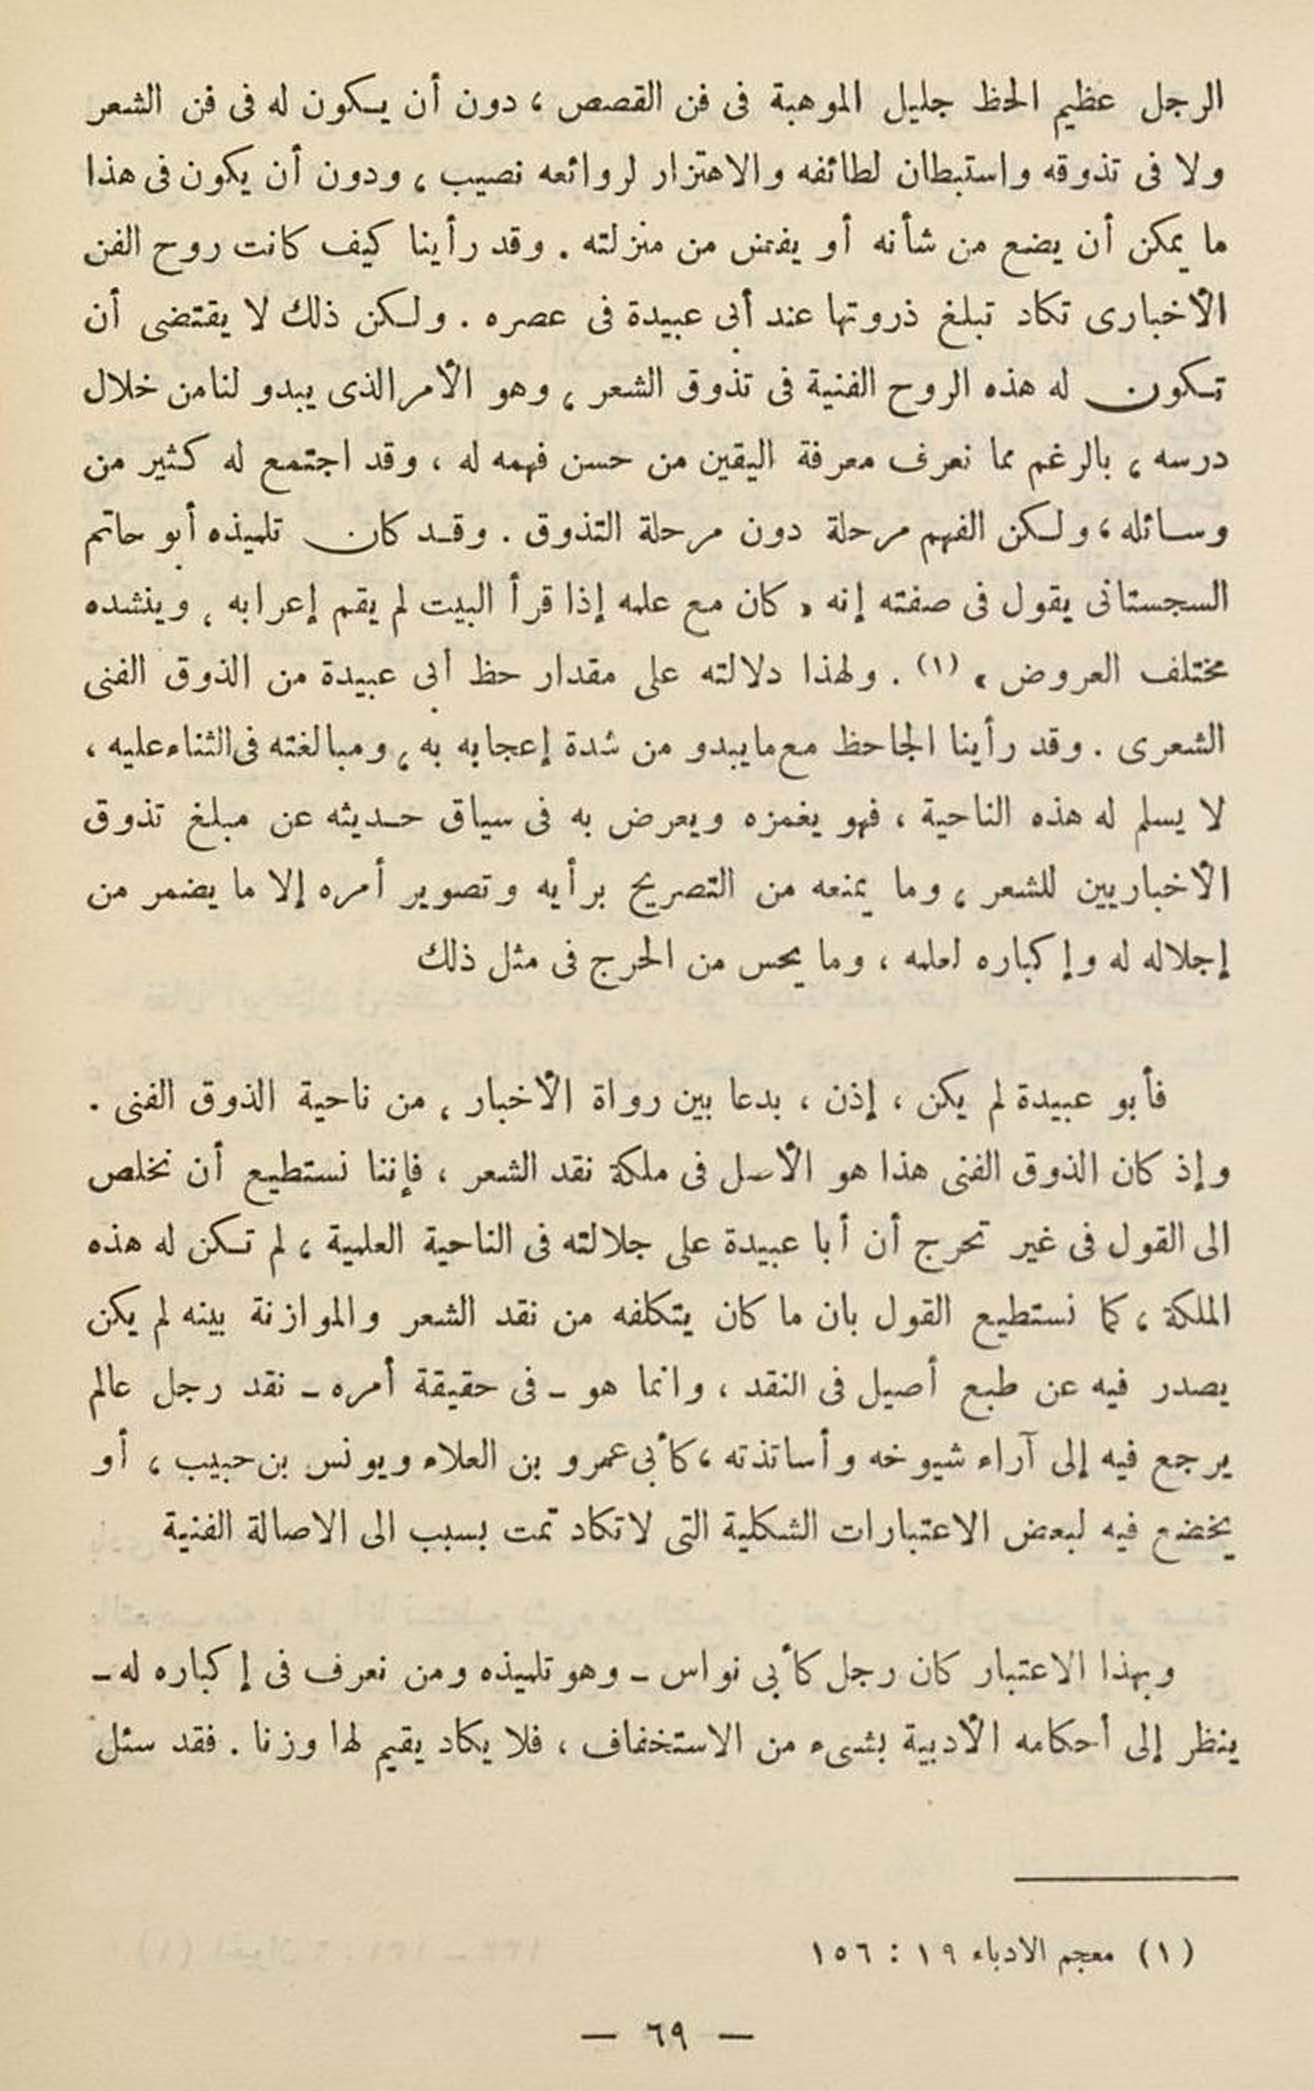 الرجل عظيم الحظ جليل الموهبة فى فن القصص ، دون أن يكون له فى فن الشعر
ولا فى تذوقه واستبطان لطائفه والاهتزار لروائعه نصيب ، ودون أن يكون فى هذا
ما يمكن أن يضع من شأنه أو يغض من منزلته . وقد رأينا كيف كانت روح الفن
الأخبارى تكاد تبلغ ذروتها عند أبى عبيدة فى عصره . ولكن ذلك لا يقتضى أن
تكون له هذه الروح الفنية فى تذوق الشعر ، وهو الأمر الذى يبدو لنا من خلال
درسه ، بالرغم مما نعرف معرفة اليقين من حسن فهمه له ، وقد اجتمع له كثير من
وسائله ، ولكن الفهم مرحلة دون مرحلة التذوق . وقد كان تلميذه أبو حاتم
السجستانى يقول فى صفته إنه « كان مع علمه إذا قرأ البيت لم يقم إعرابه ، وينشده
مختلف العروض » (١) . ولهذا دلالته على مقدار حظ أبى عبيدة من الذوق الفنى
الشعرى . وقد رأينا الجاحظ مع ما يبدو من شدة إعجابه به ، ومبالغته فى الثناء عليه ،
لا يسلم له هذه الناحية ، فهو يغمزه ويعرض به فى سياق حديثه عن مبلغ تذوق
الأخباريين للشعر ، وما يمنعه من التصريح برأيه وتصوير أمره إلا ما يضمر من
إجلاله له وإكباره لعلمه ، وما يحس من الحرج فى مثل ذلك
فأبو عبيدة لم يكن ، إذن ، بدعا بين رواة الأخبار ، من ناحية الذوق الفنى .
وإذ كان الذوق الفنى هذا هو الأصل فى ملكة نقد الشعر ، فإننا نستطيع أن نخلص
الى القول فى غير تحرج أن أبا عبيدة على جلالته فى الناحية العلمية ، لم تكن له هذه
الملكة ، كما نستطيع القول بان ما كان يتكلفه من نقد الشعر والموازنة بينه لم يكن
يصدر فيه عن طبع أصيل فى النقد ، وانما هو - فى حقيقة أمره - نقد رجل عالم
يرجع فيه إلى آراء شيوخه وأساتذته ، كأبى عمرو بن العلاء ويونس بن حبيب ، أو
يخضع فيه لبعض الاعتبارات الشكلية التى لا تكاد تمت بسبب الى الاصالة الفنية
وبهذا الاعتبار كان رجل كأبى نواس - وهو تلميذه ومن نعرف فى إكباره له -
ينظر إلى أحكامه الأدبية بشىء من الاستخفاف ، فلا يكاد يقيم لها وزنا . فقد سئل
(١) معجم الادباء ١٩ : ١٥٦
— ٦٩ —